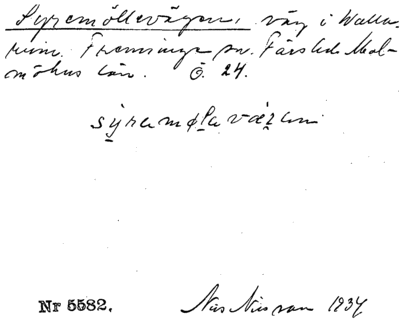 Syremöllevägen, väg i Walla-
rum. Fremninge sn. Färs hd. Mal-
möhus län. Ö. 24.
Nr 5582. Nils Nilsson 1934